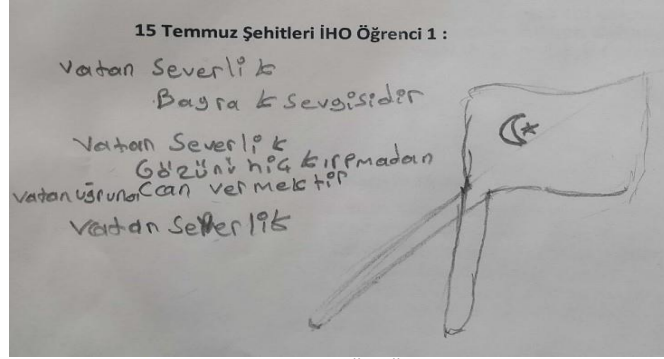 15 Temmuz Şehitleri İHO Öğrenci 1 :
Vatan Severlik
Bayrak sevgisidir
Vatan Severlik
Gözünü hiç kırpmadan
vatan uğruna can vermektir
Vatan Severlik